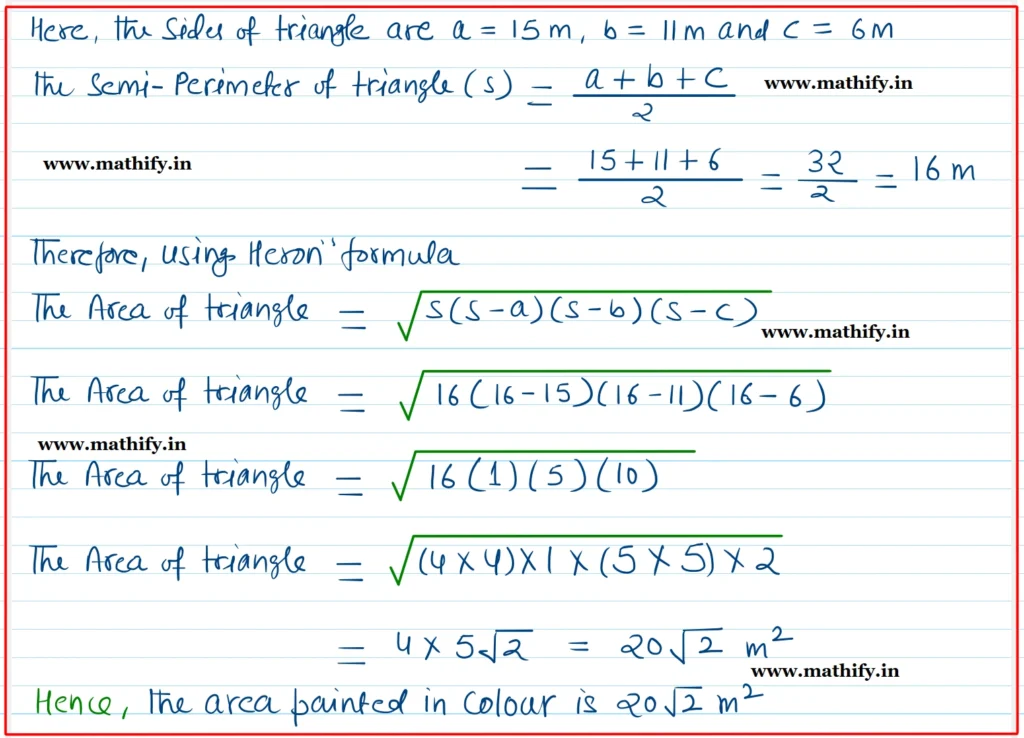 Here, the sides of triangle are a = 15 m, b = 11 m and c = 6 m
the Semi-Perimeter of triangle (s) = (a + b + c)/2 www.mathify.in
www.mathify.in = (15 + 11 + 6)/2 = 32/2 = 16 m
Therefore, using Heron'' formula
The Area of triangle = √(s(s-a)(s-b)(s-c)) www.mathify.in
The Area of triangle = √(16(16-15)(16-11)(16-6))
www.mathify.in
The Area of triangle = √(16(1)(5)(10))
The Area of triangle = √((4×4)×1×(5×5)×2)
= 4×5√2 = 20√2 m²
www.mathify.in
Hence, the area painted in colour is 20√2 m²